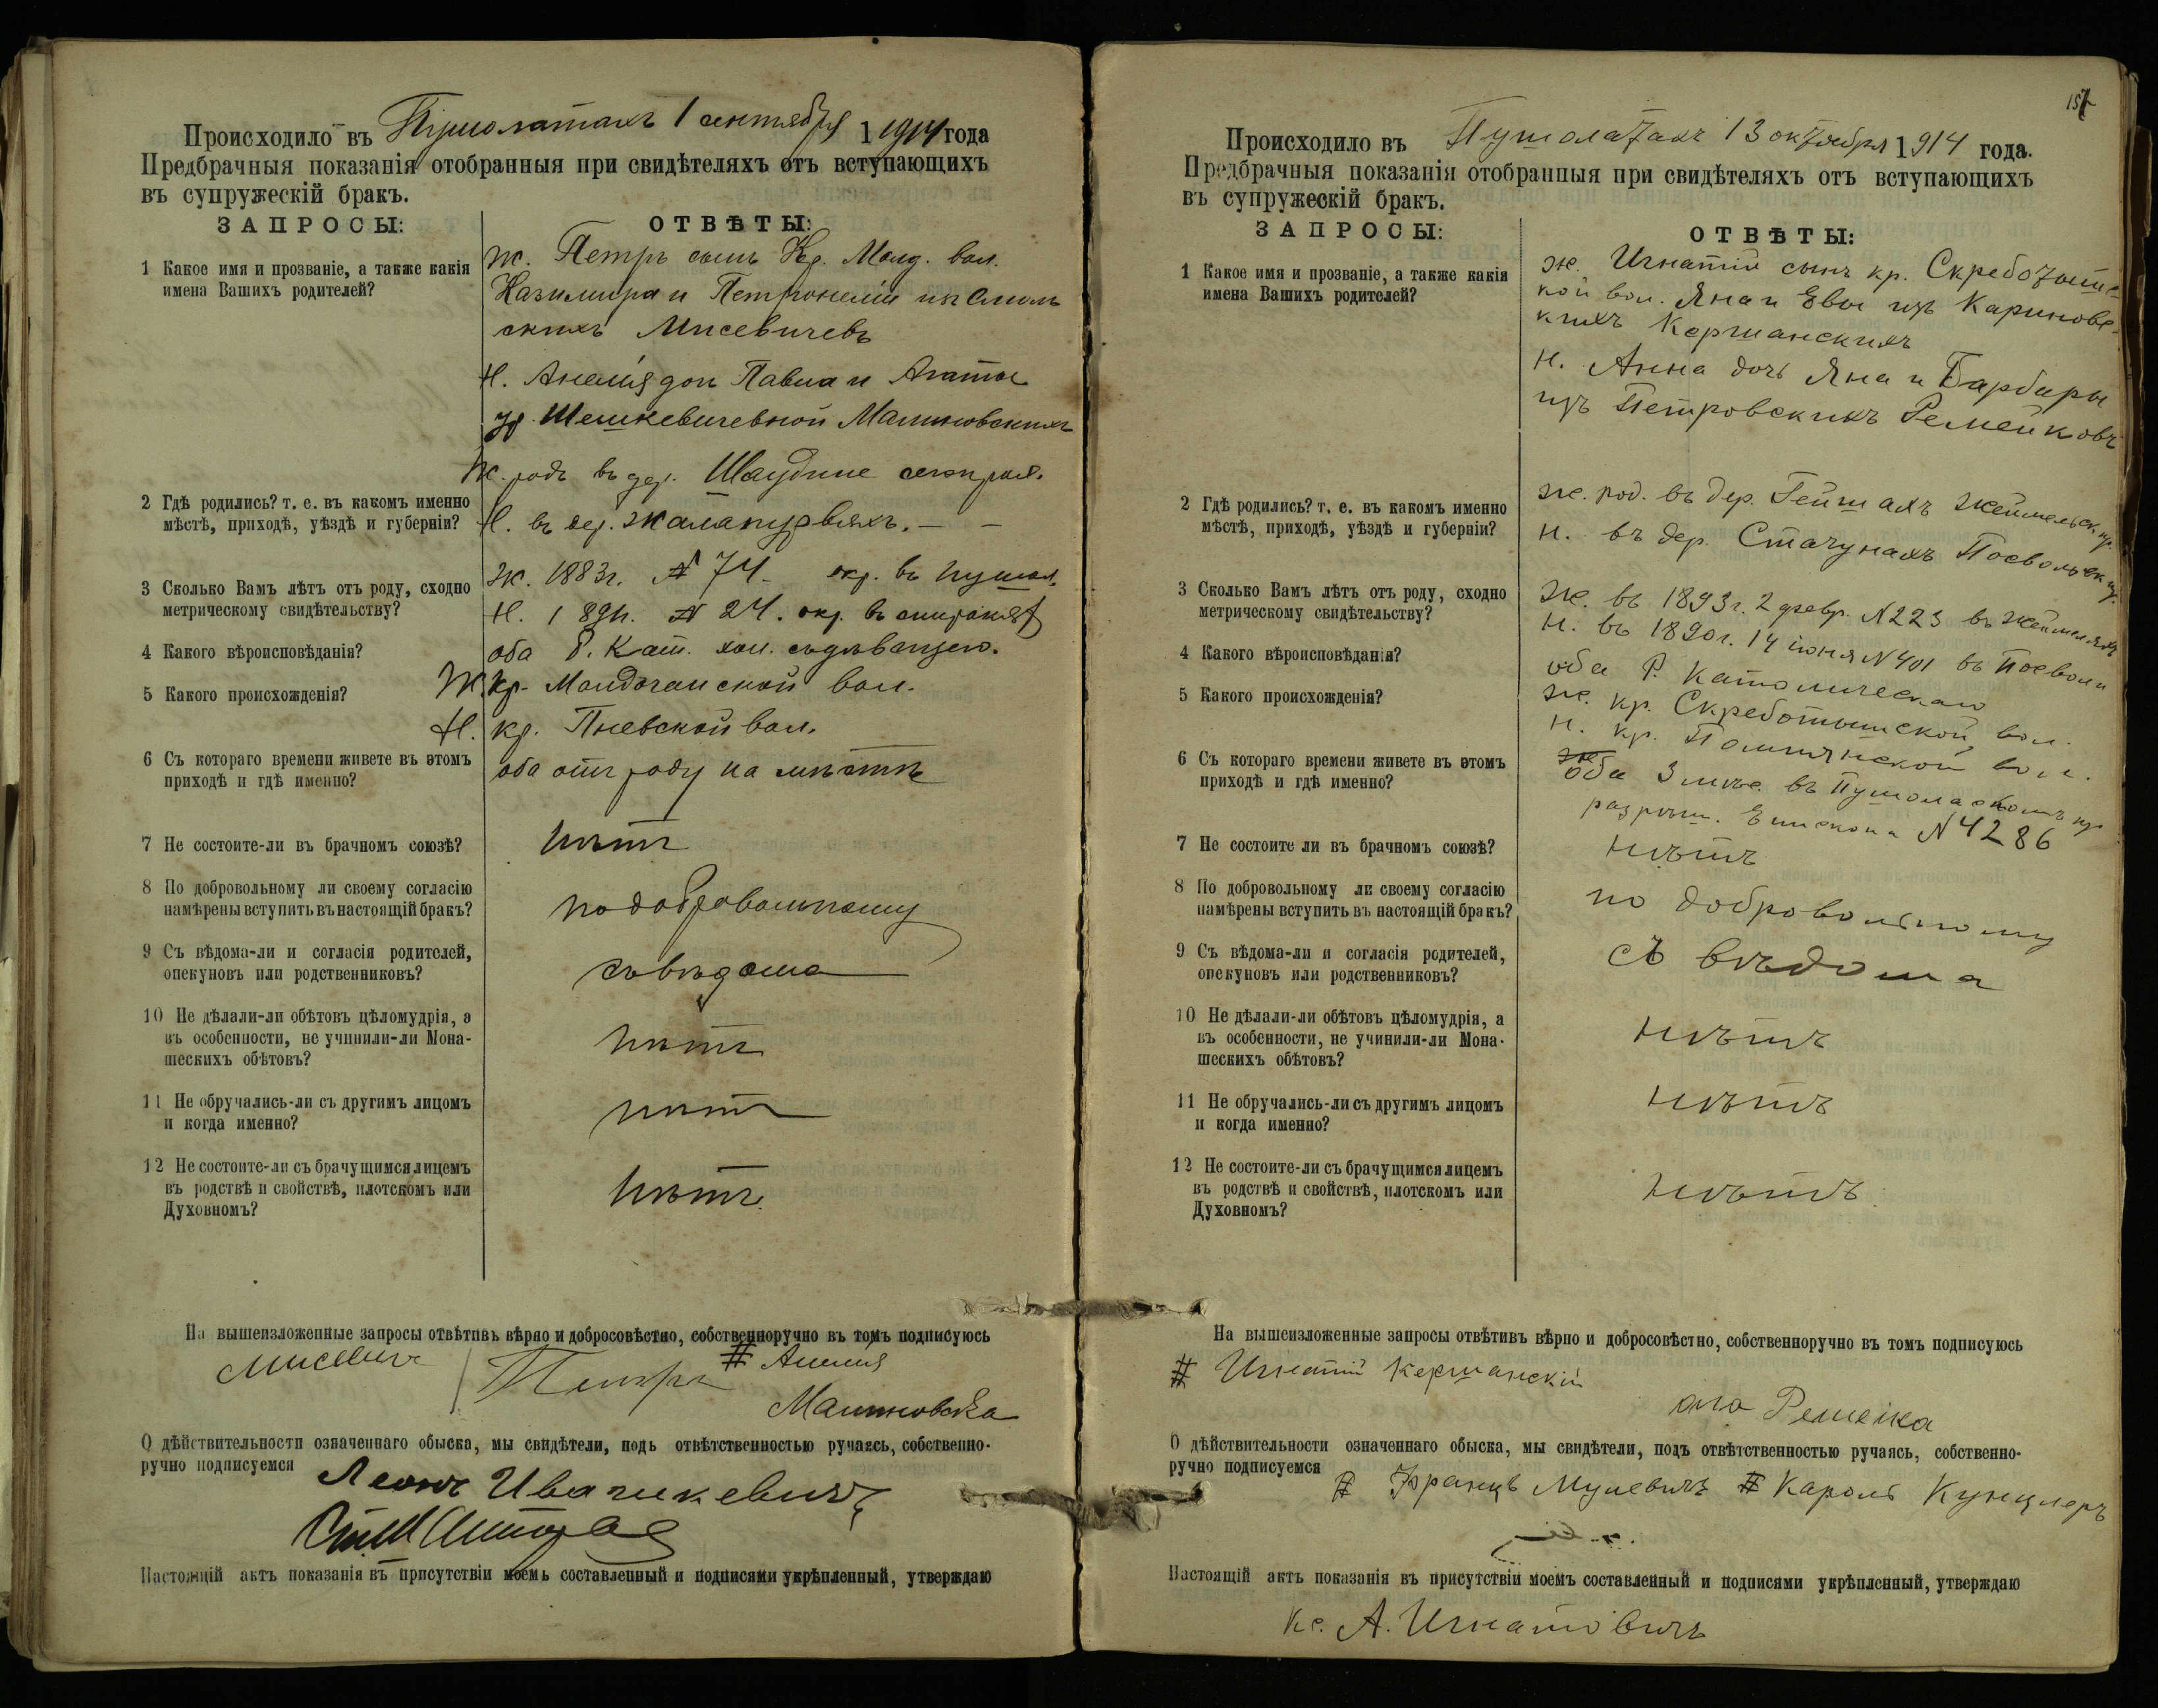 Происходило въ Пушолатахъ 1 сентября 1 1914 года
Предбрачныя показанія отобранныя при свидѣтеляхъ отъ вступающихъ
въ супружескій бракъ.
ЗАПРОСЫ:
ОТВѢТЫ:
1 Какое имя и прозваніе, а также какія
имена Вашихъ родителей?
Ж. Петръ сынъ Кр. Молд. вол.
Казимира и Петронеліи изъ
скихъ Мисевичевъ
Н. Анелія доч Павла и Агаты
ур. Шешкевичевной Малиновскихъ
2 Гдѣ родились? т. е. въ какомъ именно
мѣстѣ, приходѣ, уѣздѣ и губерніи?
Ж. родъ въ дер.
Н. въ дер.
3 Сколько Вамъ лѣтъ отъ роду, сходно
метрическому свидѣтельству?
Ж. 1883г. № 74 - окр. въ Пушол.
Н. № 24. окр. въ
4 Какого вѣроисповѣданія?
оба Р. Кат.
5 Какого происхожденія?
Ж кр. вол.
Н. кр. Пневской вол.
6 Съ котораго времени живете въ этомъ
приходѣ и гдѣ именно?
оба отъ роду на мѣстѣ
7 Не состоите-ли въ брачномъ союзѣ?
нѣтъ
8 По добровольному ли своему согласію
намѣрены вступить въ настоящій бракъ?
по добровольному
9 Съ вѣдома-ли и согласія родителей,
опекуновъ или родственниковъ?
съ вѣдома
10 Не дѣлали-ли обѣтовъ цѣломудрія, а
въ особенности, не учинили-ли Мона-
шескихъ обѣтовъ?
нѣтъ
11 Не обручались-ли съ другимъ лицомъ
и когда именно?
нѣтъ
12 Не состоите-ли съ брачущимся лицемъ
въ родствѣ и свойствѣ, плотскомъ или
Духовномъ?
нѣтъ
На вышеизложенные запросы отвѣтивъ вѣрно и добросовѣстно, собственноручно въ томъ подписуюсь
Мисевич Петръ # Анелія
Малиновска
О дѣйствительности означеннаго обыска, мы свидѣтели, подъ отвѣтственностью ручаясь, собственно-
ручно подписуемся
Леонъ
Настоящій актъ показанія въ присутствіи моемъ составленный и подписями укрѣпленный, утверждаю
157
Происходило въ Пушолатахъ 13 октября 1914 года.
Предбрачныя показанія отобранныя при свидѣтеляхъ отъ вступающихъ
въ супружескій бракъ.
ЗАПРОСЫ:
ОТВѢТЫ:
1 Какое имя и прозваніе, а также какія
имена Вашихъ родителей?
Ж. Игнатій сынъ кр. Скреботыш-
кой вол. Яна и Евы изъ Каринов-
кихъ Кершанскихъ
Н. Анна дочь Яна и Барбары
изъ Петровскихъ Ремейковъ
2 Гдѣ родились? т. е. въ какомъ именно
мѣстѣ, приходѣ, уѣздѣ и губерніи?
Ж. род. въ дер. Гейшахъ Жеймельск. пр.
Н. въ дер. Стачунахъ Посвольск пр.
3 Сколько Вамъ лѣтъ отъ роду, сходно
метрическому свидѣтельству?
Ж. въ 1893г. 2 февр. №223 въ Жеймеляхъ
Н. въ 1890г. 14 іюня №401 въ Посволи
4 Какого вѣроисповѣданія?
оба Р. Католическаго
5 Какого происхожденія?
Ж. кр. Скреботышской вол.
Н. кр. вол.
6 Съ котораго времени живете въ этомъ
приходѣ и гдѣ именно?
оба 3 мѣс. въ Пушоласкомъ пр
разрѣш. Епископа №4286
7 Не состоите ли въ брачномъ союзѣ?
нѣтъ
8 По добровольному ли своему согласію
намѣрены вступить въ настоящій бракъ?
по добровольному
9 Съ вѣдома-ли и согласія родителей,
опекуновъ или родственниковъ?
съ вѣдома
10 Не дѣлали-ли обѣтовъ цѣломудрія, а
въ особенности, не учинили-ли Мона-
шескихъ обѣтовъ?
нѣтъ
11 Не обручались-ли съ другимъ лицомъ
и когда именно?
нѣтъ
12 Не состоите-ли съ брачущимся лицемъ
въ родствѣ и свойствѣ, плотскомъ или
Духовномъ?
нѣтъ
На вышеизложенные запросы отвѣтивъ вѣрно и добросовѣстно, собственноручно въ томъ подписуюсь
# Игнатій Кершанскій
Ремейка
О дѣйствительности означеннаго обыска, мы свидѣтели, подъ отвѣтственностью ручаясь, собственно-
ручно подписуемся
# Францъ Мулевичъ # Кароль Кунцлеръ
Настоящій актъ показанія въ присутствіи моемъ составленный и подписями укрѣпленный, утверждаю
Кс. А. Игнатовичъ